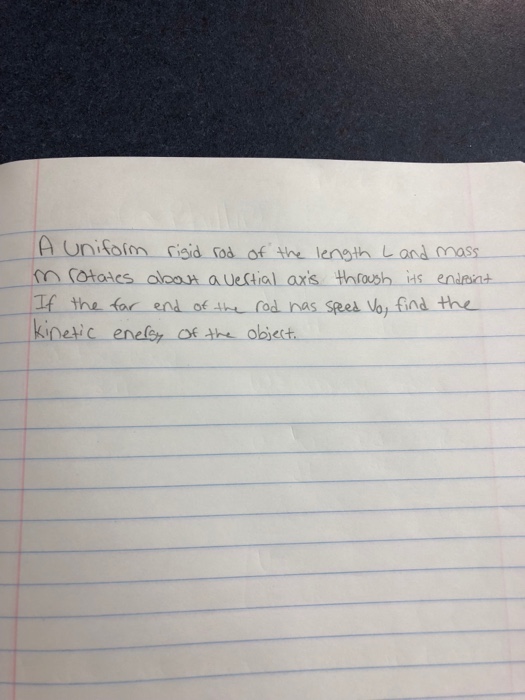 A uniform rigid rod of the length L and mass
m rotates about a vertial axis through its endpoint
If the far end of the rod has speed V0, find the
kinetic energy of the object.